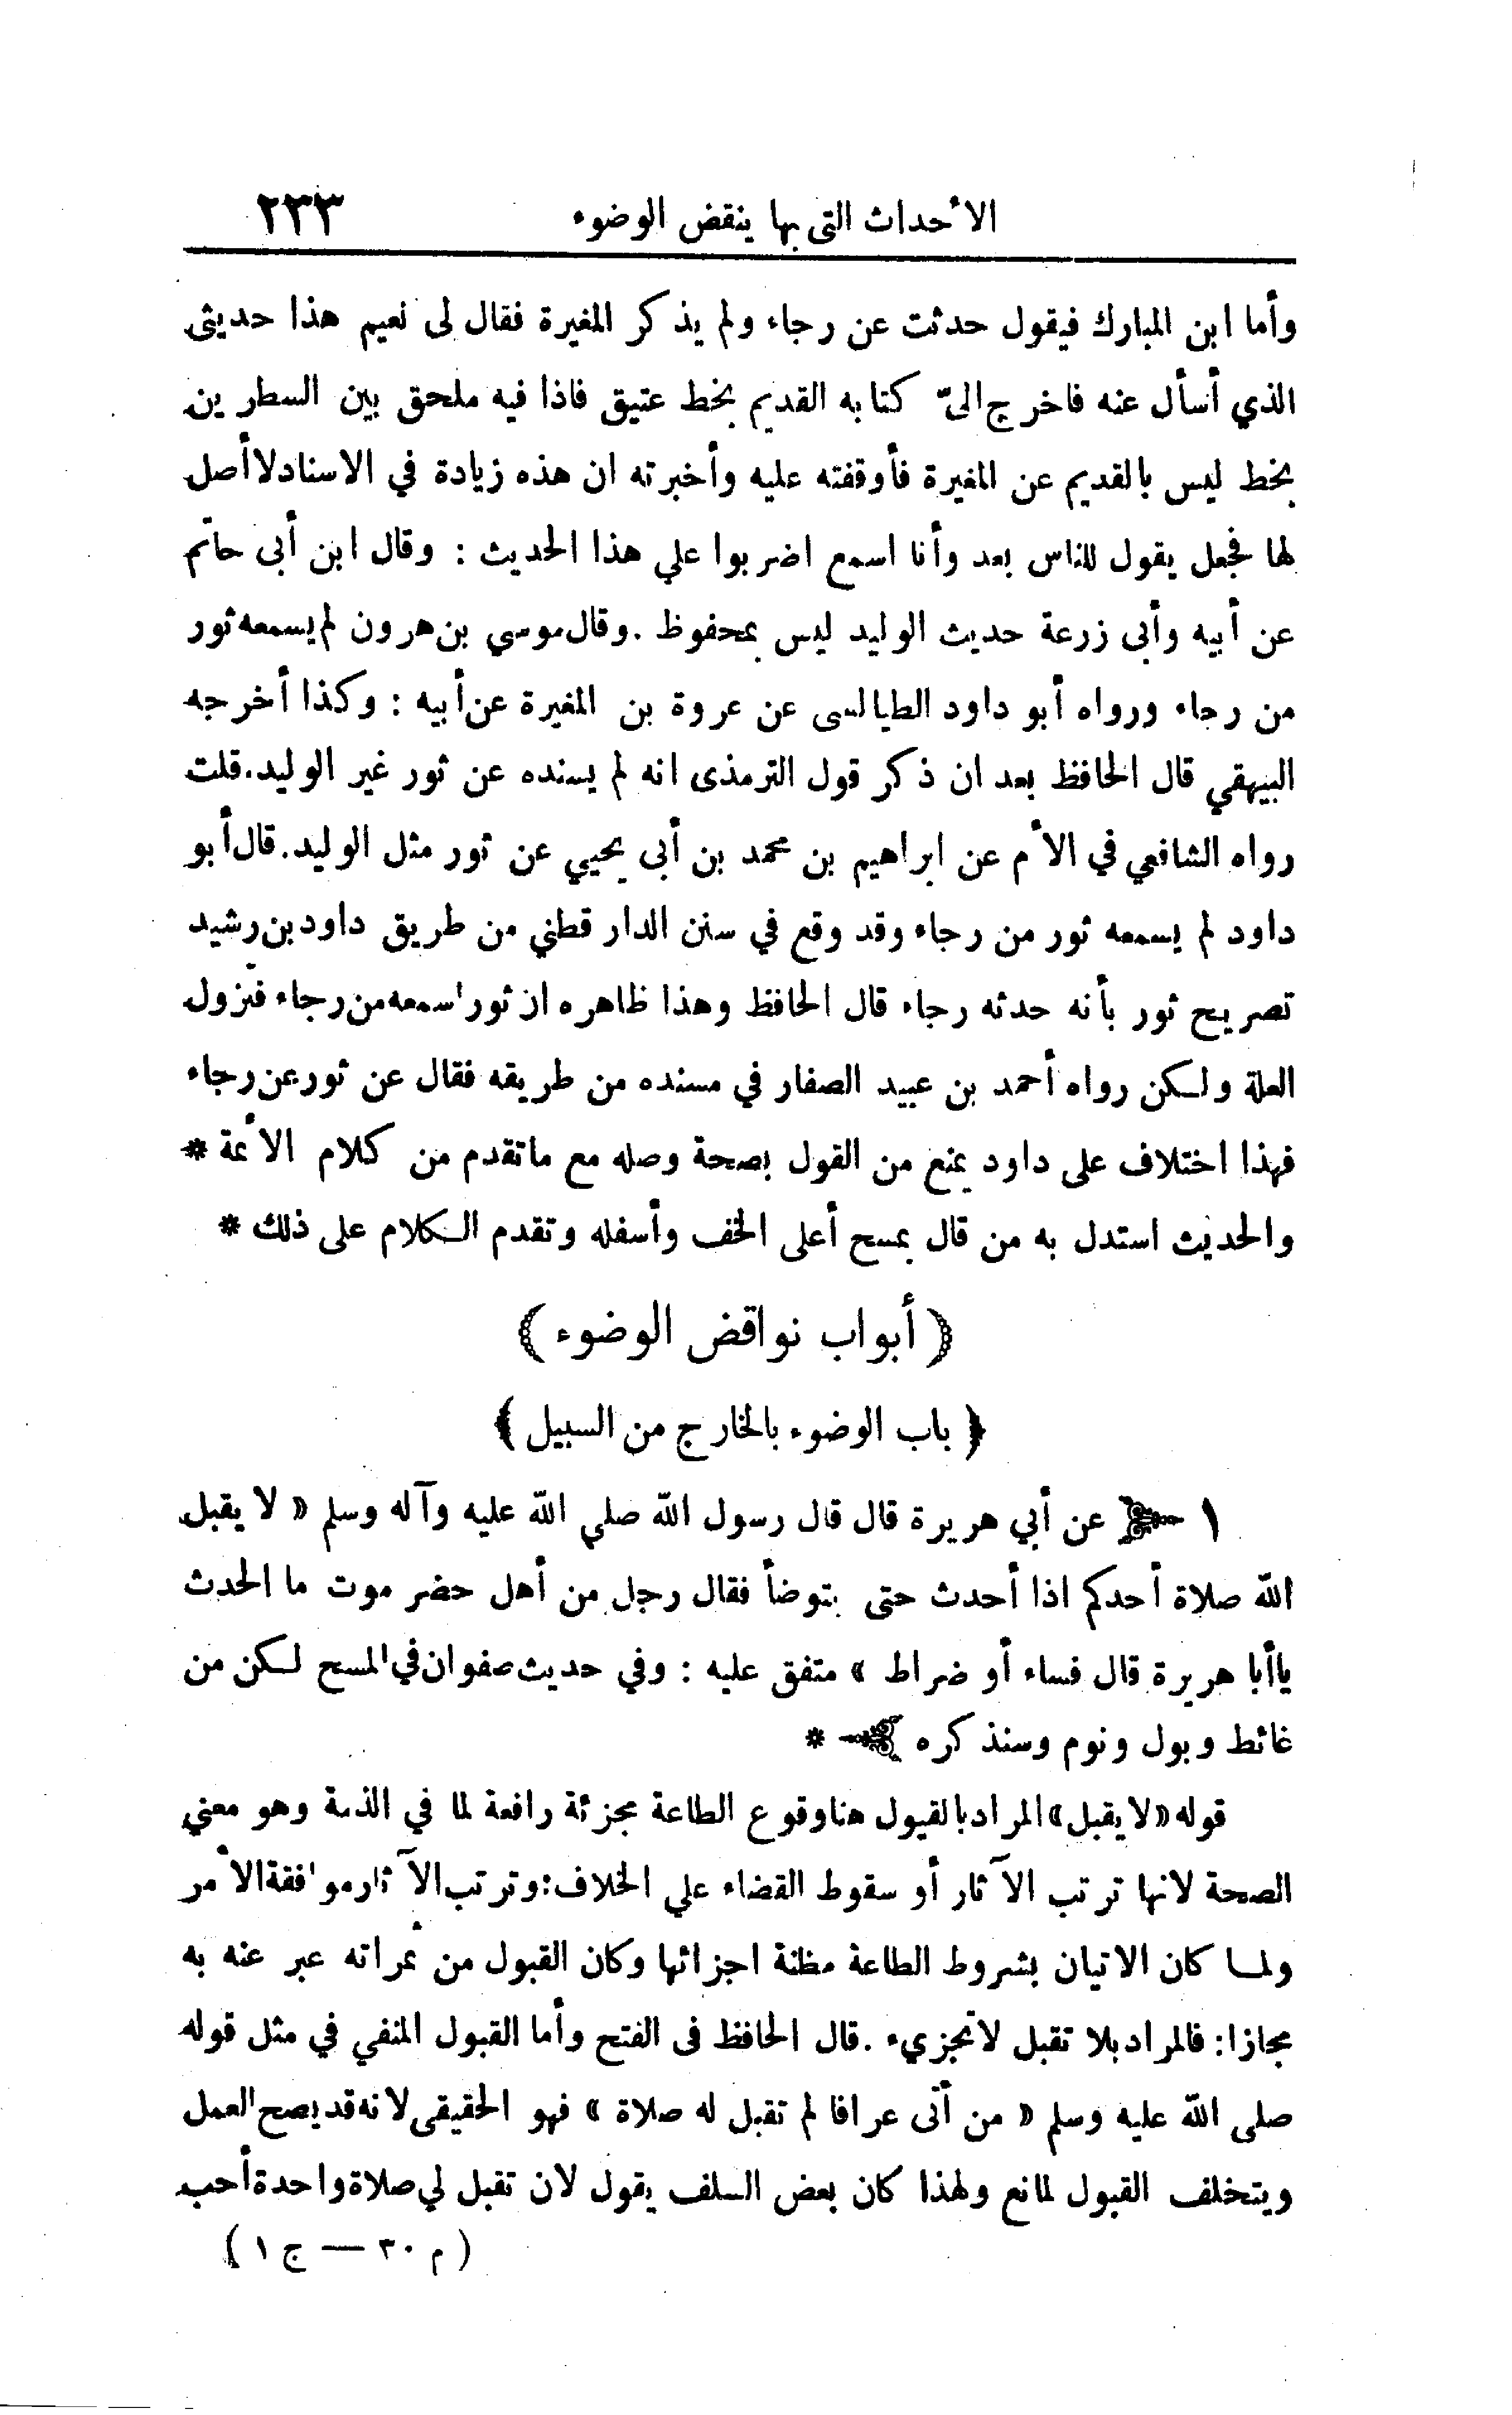 الأحداث التى بها ينقض الوضوء ٢٣٣
وأما ابن المبارك فيقول حدثت عن رجاء ولم يذكر المغيرة فقال لى نعيم هذا حديثى
الذي أسأل عنه فاخرج الىّ كتابه القديم بخط عتيق فاذا فيه ملحق بين السطرين
بخط ليس بالقديم عن المغيرة فأوقفته عليه وأخبرته ان هذه زيادة في الاسناد لا أصل
لها فجعل يقول للناس بعد وأنا اسمع اضربوا علي هذا الحديث : وقال ابن أبى حاتم
عن أبيه وأبى زرعة حديث الوليد ليس بمحفوظ . وقال موسي بن هرون لم يسمعه ثور
من رجاء ورواه أبو داود الطيالسى عن عروة بن المغيرة عن أبيه : وكذا أخرجه
البيهقي قال الحافظ بعد ان ذكر قول الترمذى انه لم يسنده عن ثور غير الوليد. قلت
رواه الشافعي في الأم عن ابراهيم بن محمد بن أبى يحيي عن ثور مثل الوليد. قال أبو
داود لم يسمعه ثور من رجاء وقد وقع في سنن الدار قطني من طريق داود بن رشيد
تصريح ثور بأنه حدثه رجاء قال الحافظ وهذا ظاهره ان ثورا سمعه من رجاء فتزول
العلة ولكن رواه أحمد بن عبيد الصفار في مسنده من طريقه فقال عن ثور عن رجاء
فهذا اختلاف على داود يمنع من القول بصحة وصله مع ما تقدم من كلام الأئمة *
والحديث استدل به من قال بمسح أعلى الخف وأسفله وتقدم الكلام على ذلك *
﴿ أبواب نواقض الوضوء ﴾
﴿ باب الوضوء بالخارج من السبيل ﴾
١ عن أبي هريرة قال قال رسول الله صلي الله عليه وآله وسلم « لا يقبل
الله صلاة أحدكم اذا أحدث حتى يتوضأ فقال رجل من أهل حضر موت ما الحدث
يا أبا هريرة قال فساء أو ضراط » متفق عليه : وفي حديث صفوان في المسح لكن من
غائط وبول ونوم وسنذكره *
قوله « لا يقبل » المراد بالقبول هنا وقوع الطاعة مجزئة رافعة لما في الذمة وهو معني
الصحة لانها ترتب الآثار أو سقوط القضاء علي الخلاف : وترتب الآثار موافقة الأمر
ولما كان الاتيان بشروط الطاعة مظنة اجزائها وكان القبول من ثمراته عبر عنه به
مجازا: فالمراد بلا تقبل لا تجزيء . قال الحافظ فى الفتح وأما القبول المنفي في مثل قوله
صلى الله عليه وسلم « من أتى عرافا لم تقبل له صلاة » فهو الحقيقى لانه قد يصح العمل
ويتخلف القبول لمانع ولهذا كان بعض السلف يقول لان تقبل لي صلاة واحدة أحب
( م ٣٠ — ج ١ )